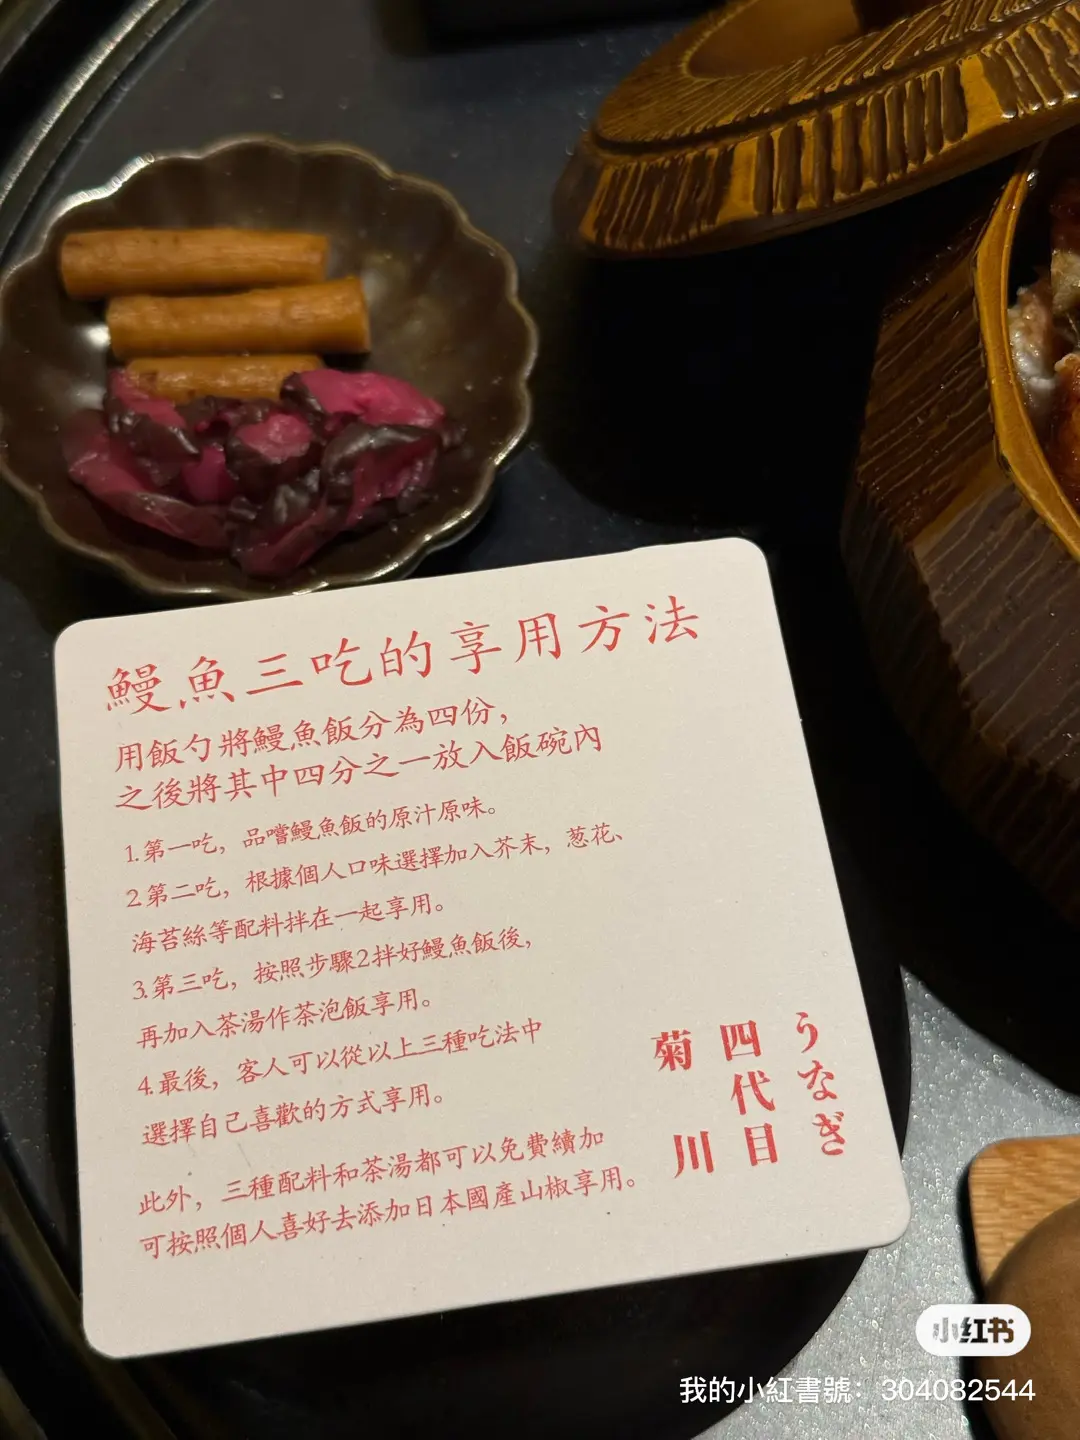 鰻魚三吃的享用方法
用飯勺將鰻魚飯分為四份，
之後將其中四分之一放入飯碗內
1.第一吃，品嚐鰻魚飯的原汁原味。
2.第二吃，根據個人口味選擇加入芥末，葱花、
海苔絲等配料拌在一起享用。
3.第三吃，按照步驟2拌好鰻魚飯後，
再加入茶湯作茶泡飯享用。
4.最後，客人可以從以上三種吃法中
選擇自己喜歡的方式享用。
此外，三種配料和茶湯都可以免費續加
可按照個人喜好去添加日本國產山椒享用。
うなぎ
四代目
菊川
小红书
我的小紅書號：304082544